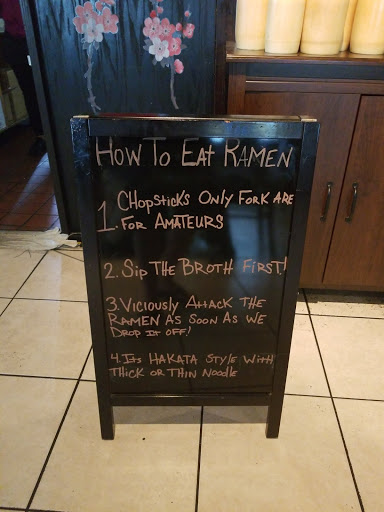 HOW TO EAT RAMEN
1. CHOPSTICKS ONLY FORK ARE
FOR AMATEURS
2. SIP THE BROTH FIRST!
3. VICIOUSLY ATTACK THE
RAMEN AS SOON AS WE
DROP IT OFF!
4. ITS HAKATA STYLE WITH
THICK OR THIN NOODLE